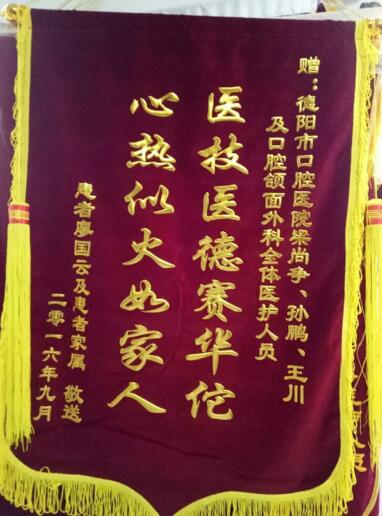 赠：德阳市口腔医院梁尚争、孙鹏、王川
及口腔颌面外科全体医护人员
医技医德赛华佗
心热似火如家人
患者廖国云及患者家属 敬送
二零一六年九月